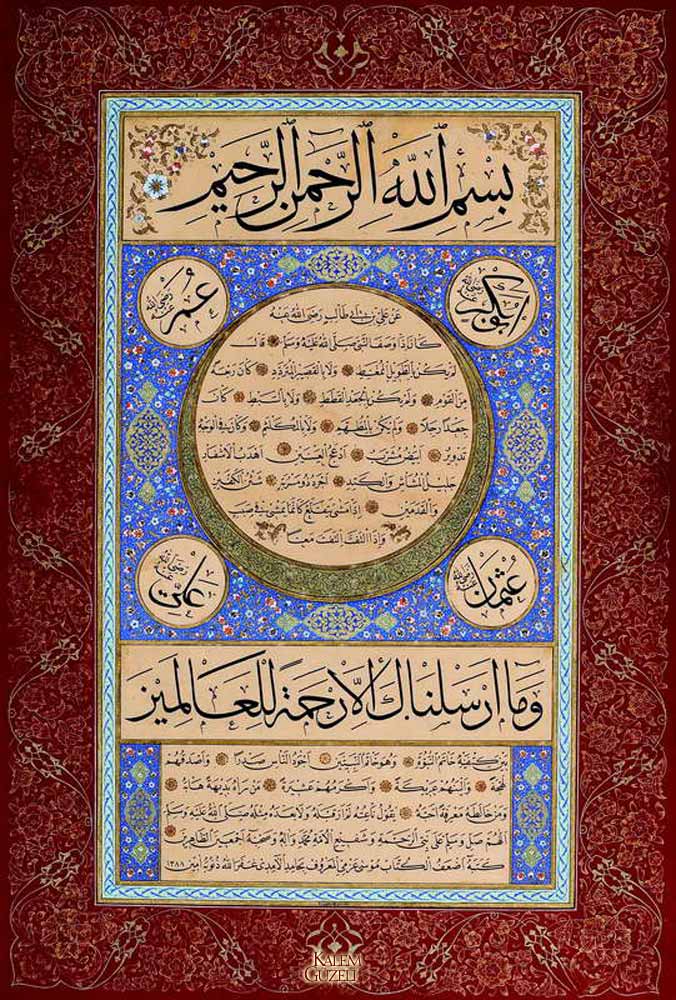 بِسْمِ اللهِ الرَّحْمٰنِ الرَّحِيمِ
ابوبكر رضي الله عنه
عُمَر رضي الله عنه
عَنْ عَلِيِّ بْنِ اَبِي طَالِبٍ رَضِيَ اللهُ عَنْهُ
كَانَ اِذَا وَصَفَ النَّبِيَّ صَلَّى اللهُ عَلَيْهِ وَسَلَّمَ قَالَ
لَمْ يَكُنْ بِالطَّوِيلِ الْمُمَغَّطِ وَلَا بِالْقَصِيرِ الْمُتَرَدِّدِ كَانَ رَبْعَةً
مِنَ الْقَوْمِ وَلَمْ يَكُنْ بِالْجَعْدِ الْقَطَطِ وَلَا بِالسَّبْطِ كَانَ
جَعْدًا رَجِلًا وَلَمْ يَكُنْ بِالْمُطَهَّمِ وَلَا بِالْمُكَلْثَمِ وَكَانَ فِي الْوَجْهِ
تَدْوِيرٌ اَبْيَضُ مُشْرَبٌ اَدْعَجُ الْعَيْنَيْنِ اَهْدَبُ الْاَشْفَارِ
جَلِيلُ الْمُشَاشِ وَالْكَتَدِ اَجْرَدُ ذُو مَسْرُبَةٍ شَثْنُ الْكَفَّيْنِ
وَالْقَدَمَيْنِ اِذَا مَشَى يَتَقَلَّعُ كَاَنَّمَا يَمْشِي فِي صَبَبٍ
وَاِذَا الْتَفَتَ الْتَفَتَ مَعًا
عُثْمَان رضي الله عنه
عَلِيّ رضي الله عنه
وَمَا اَرْسَلْنَاكَ اِلَّا رَحْمَةً لِلْعَالَمِينَ
بَيْنَ كَتِفَيْهِ خَاتَمُ النُّبُوَّةِ وَهُوَ خَاتَمُ النَّبِيِّينَ اَجْوَدُ النَّاسِ صَدْرًا وَاَصْدَقُهُمْ
لَهْجَةً وَاَلْيَنُهُمْ عَرِيكَةً وَاَكْرَمُهُمْ عَشِيرَةً مَنْ رَاٰهُ بَدِيهَةً هَابَهُ
وَمَنْ خَالَطَهُ مَعْرِفَةً اَحَبَّهُ يَقُولُ نَاعِتُهُ لَمْ اَرَ قَبْلَهُ وَلَا بَعْدَهُ مِثْلَهُ صَلَّى اللهُ عَلَيْهِ وَسَلَّمَ
اَللّٰهُمَّ صَلِّ وَسَلِّمْ عَلَى نَبِيِّ الرَّحْمَةِ وَشَفِيعِ الْاُمَّةِ مُحَمَّدٍ وَاٰلِهِ وَصَحْبِهِ اَجْمَعِينَ الطَّاهِرِينَ
كَتَبَهُ اَضْعَفُ الْكُتَّابِ مُوسَى عَزْمِي الْمَعْرُوفُ بِحَامِدِ الْاٰمِدِي غَفَرَ اللهُ ذُنُوبَهُ اٰمِين ١٣٨٨
KALEM
GÜZELİ